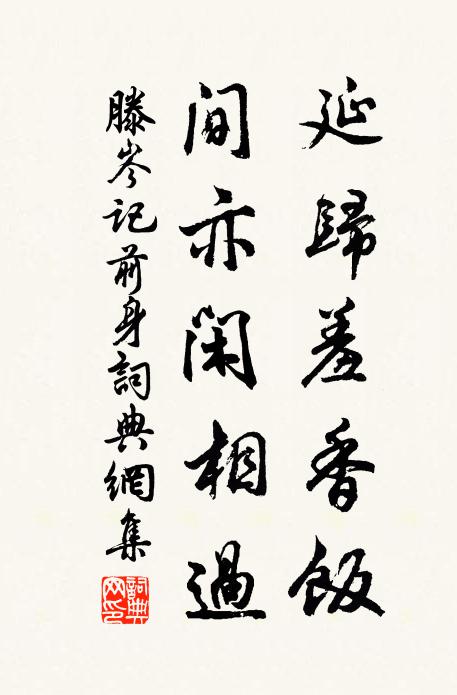 延歸羞香飯
间亦閑相過
滕岑記前身詞典網集
詞典網印